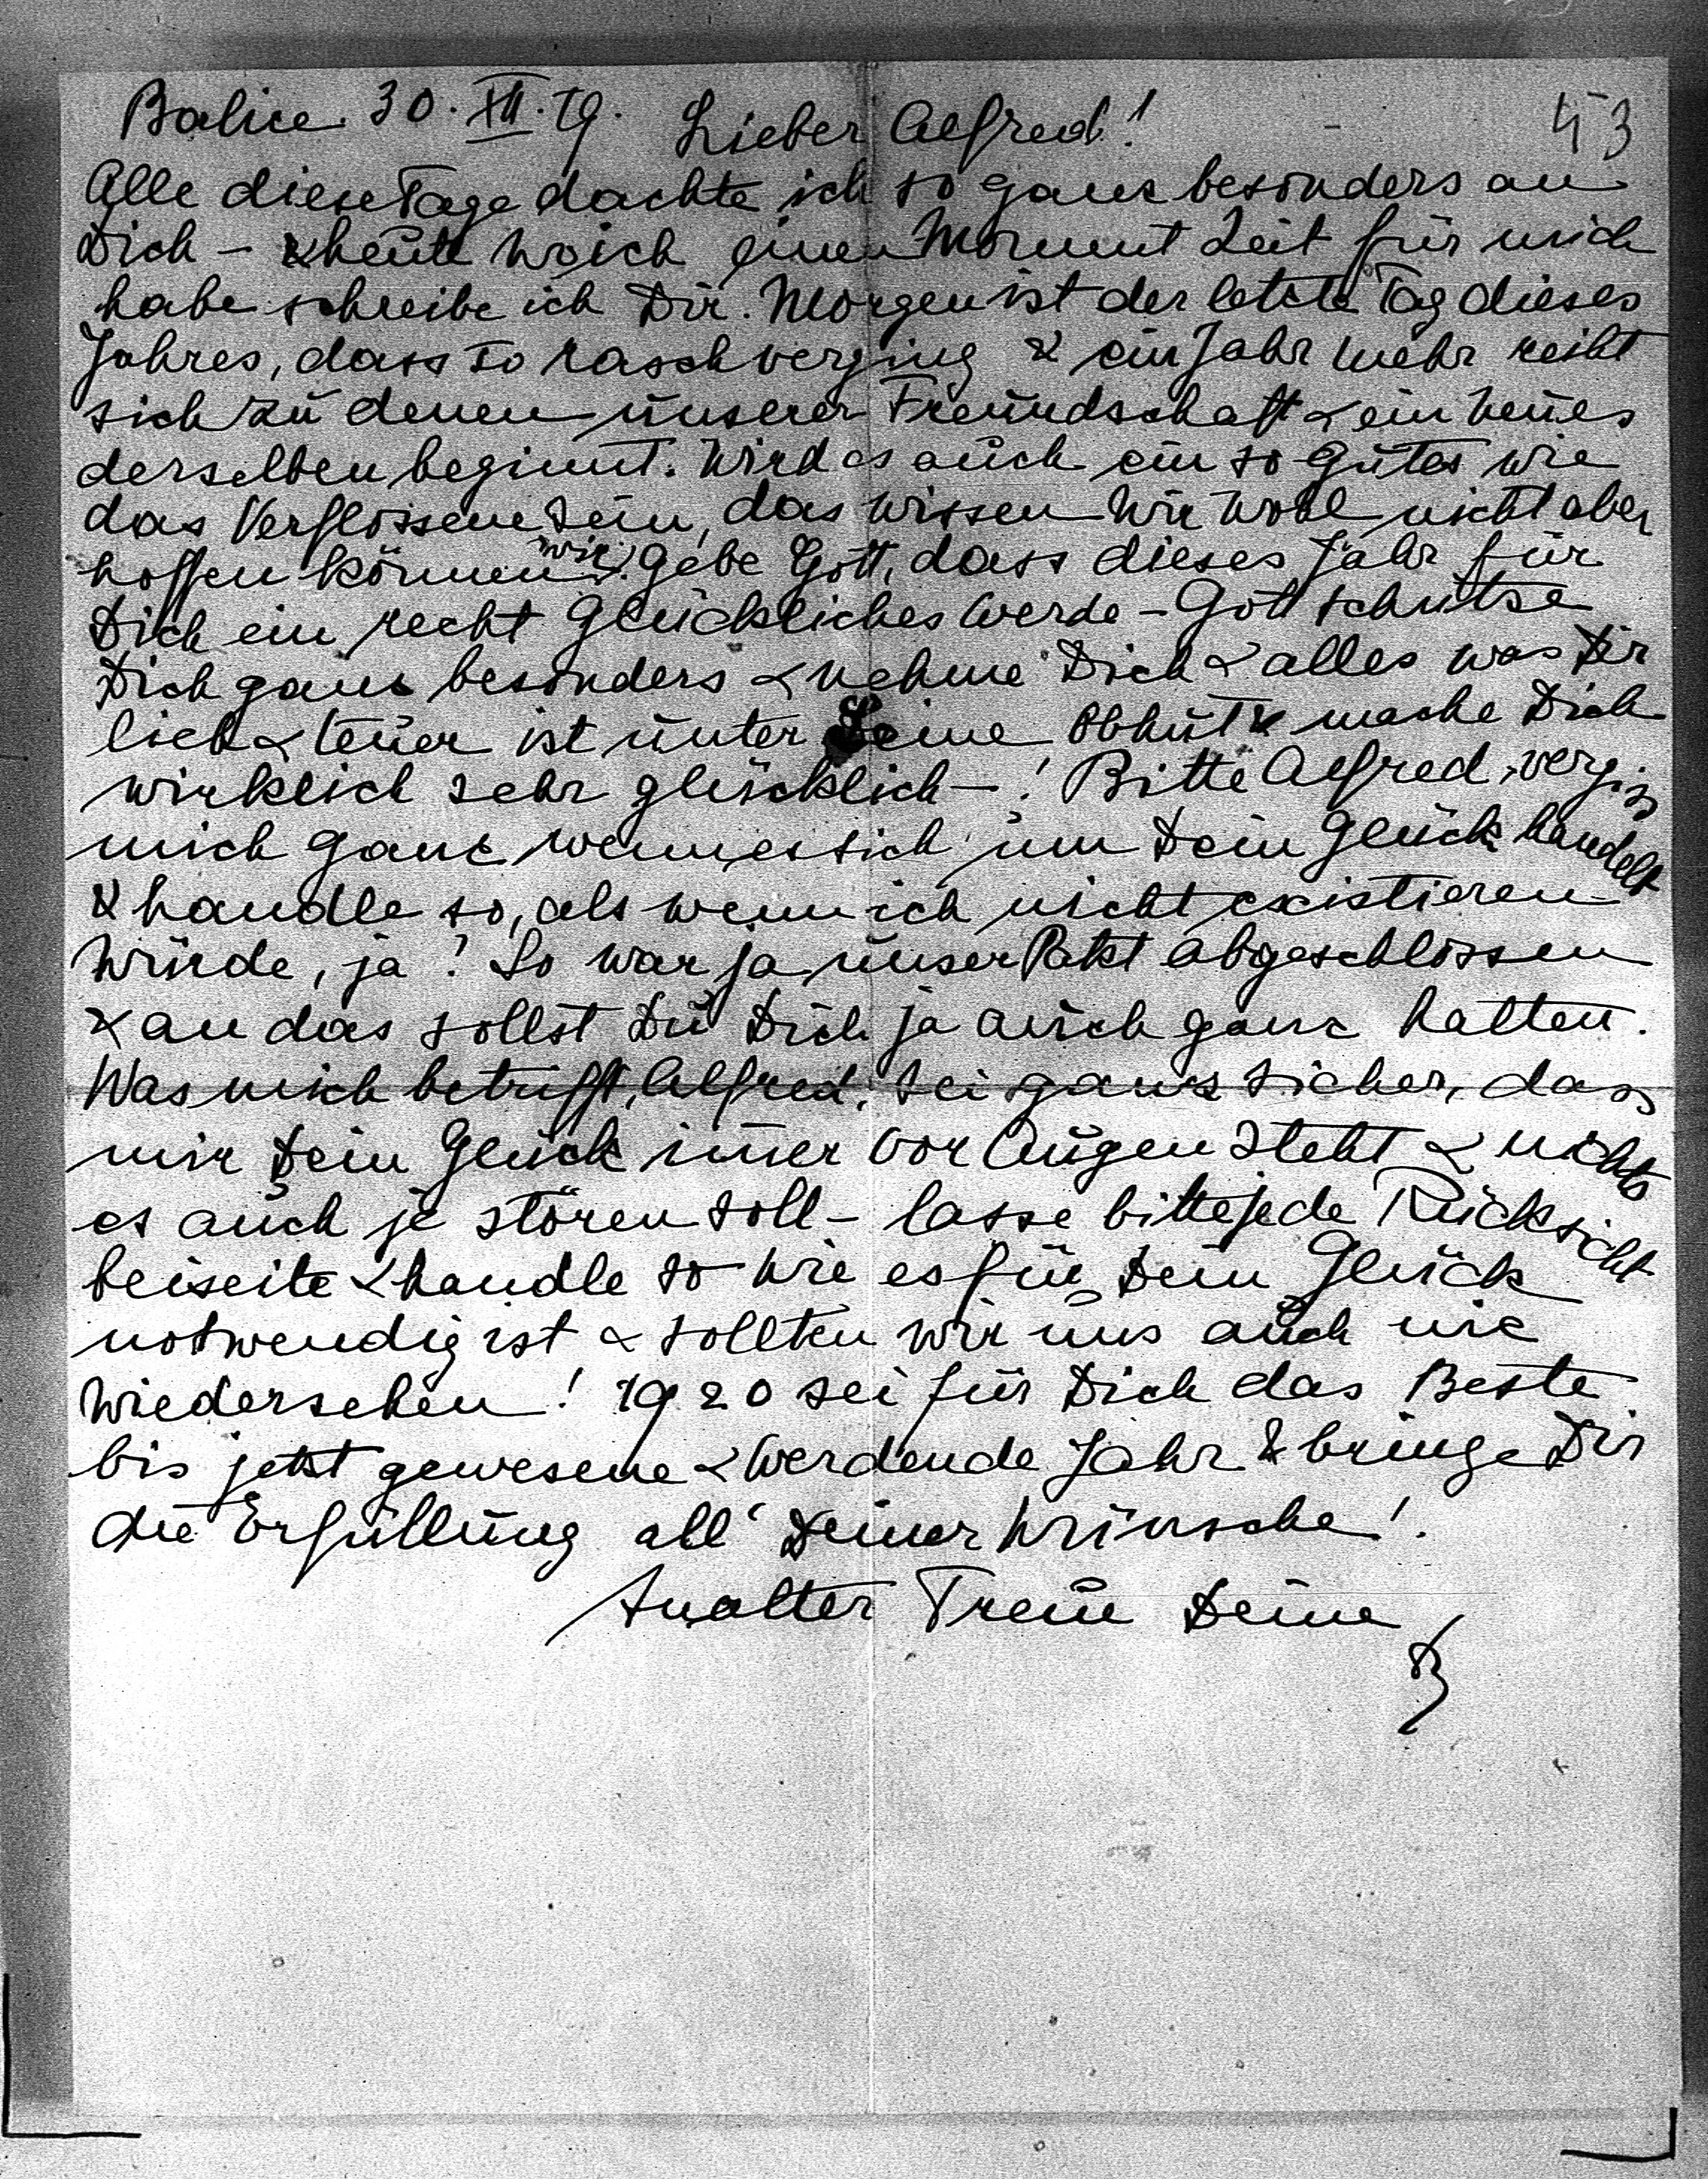 Balice 30. XII. 19.
Lieber Alfred!
53
Alle diese Tage dachte ich so ganz besonders an
Dich – & heute wo ich einen Moment Zeit für mich
habe schreibe ich Dir. Morgen ist der letzte Tag dieses
Jahres, dass so rasch verging & ein Jahr mehr reiht
sich zu denen unserer Freundschaft & ein neues
derselben beginnt. Wird es auch ein so gutes wie
das Verflossene sein, das wissen wir wohl nicht aber
hoffen können wir. Gebe Gott, dass dieses Jahr für
Dich ein recht Glückliches werde – Gott schütze
Dich ganz besonders & nehme Dich & alles was Dir
lieb & teuer ist unter Seine Obhut & mache Dich
wirklich sehr glücklich – ! Bitte Alfred, vergiss
mich ganz wenn es sich um Dein Glück handelt
& handle so, als wenn ich nicht existieren
würde, ja? So war ja unser Pakt abgeschlossen
& an das sollst Du Dich ja auch ganz halten.
Was mich betrifft, Alfred, sei ganz sicher, dass
mir Dein Glück im̄er vor Augen steht & nichts
es auch je stören soll – lasse bitte jede Rücksicht
beiseite & handle so wie es für Dein Glück
notwendig ist & sollten wir uns auch nie
wiedersehen! 1920 sei für Dich das Beste
bis jetzt gewesene & werdende Jahr & bringe Dir
die Erfüllung all' Deiner Wünsche!
In alter Treue Deine
B